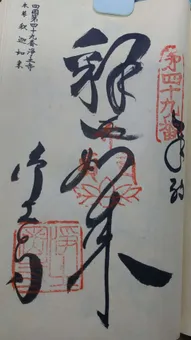 奉拝
第四十九番
釈迦如来
浄土寺
四國第四十九番浄土寺
本尊釈迦如来